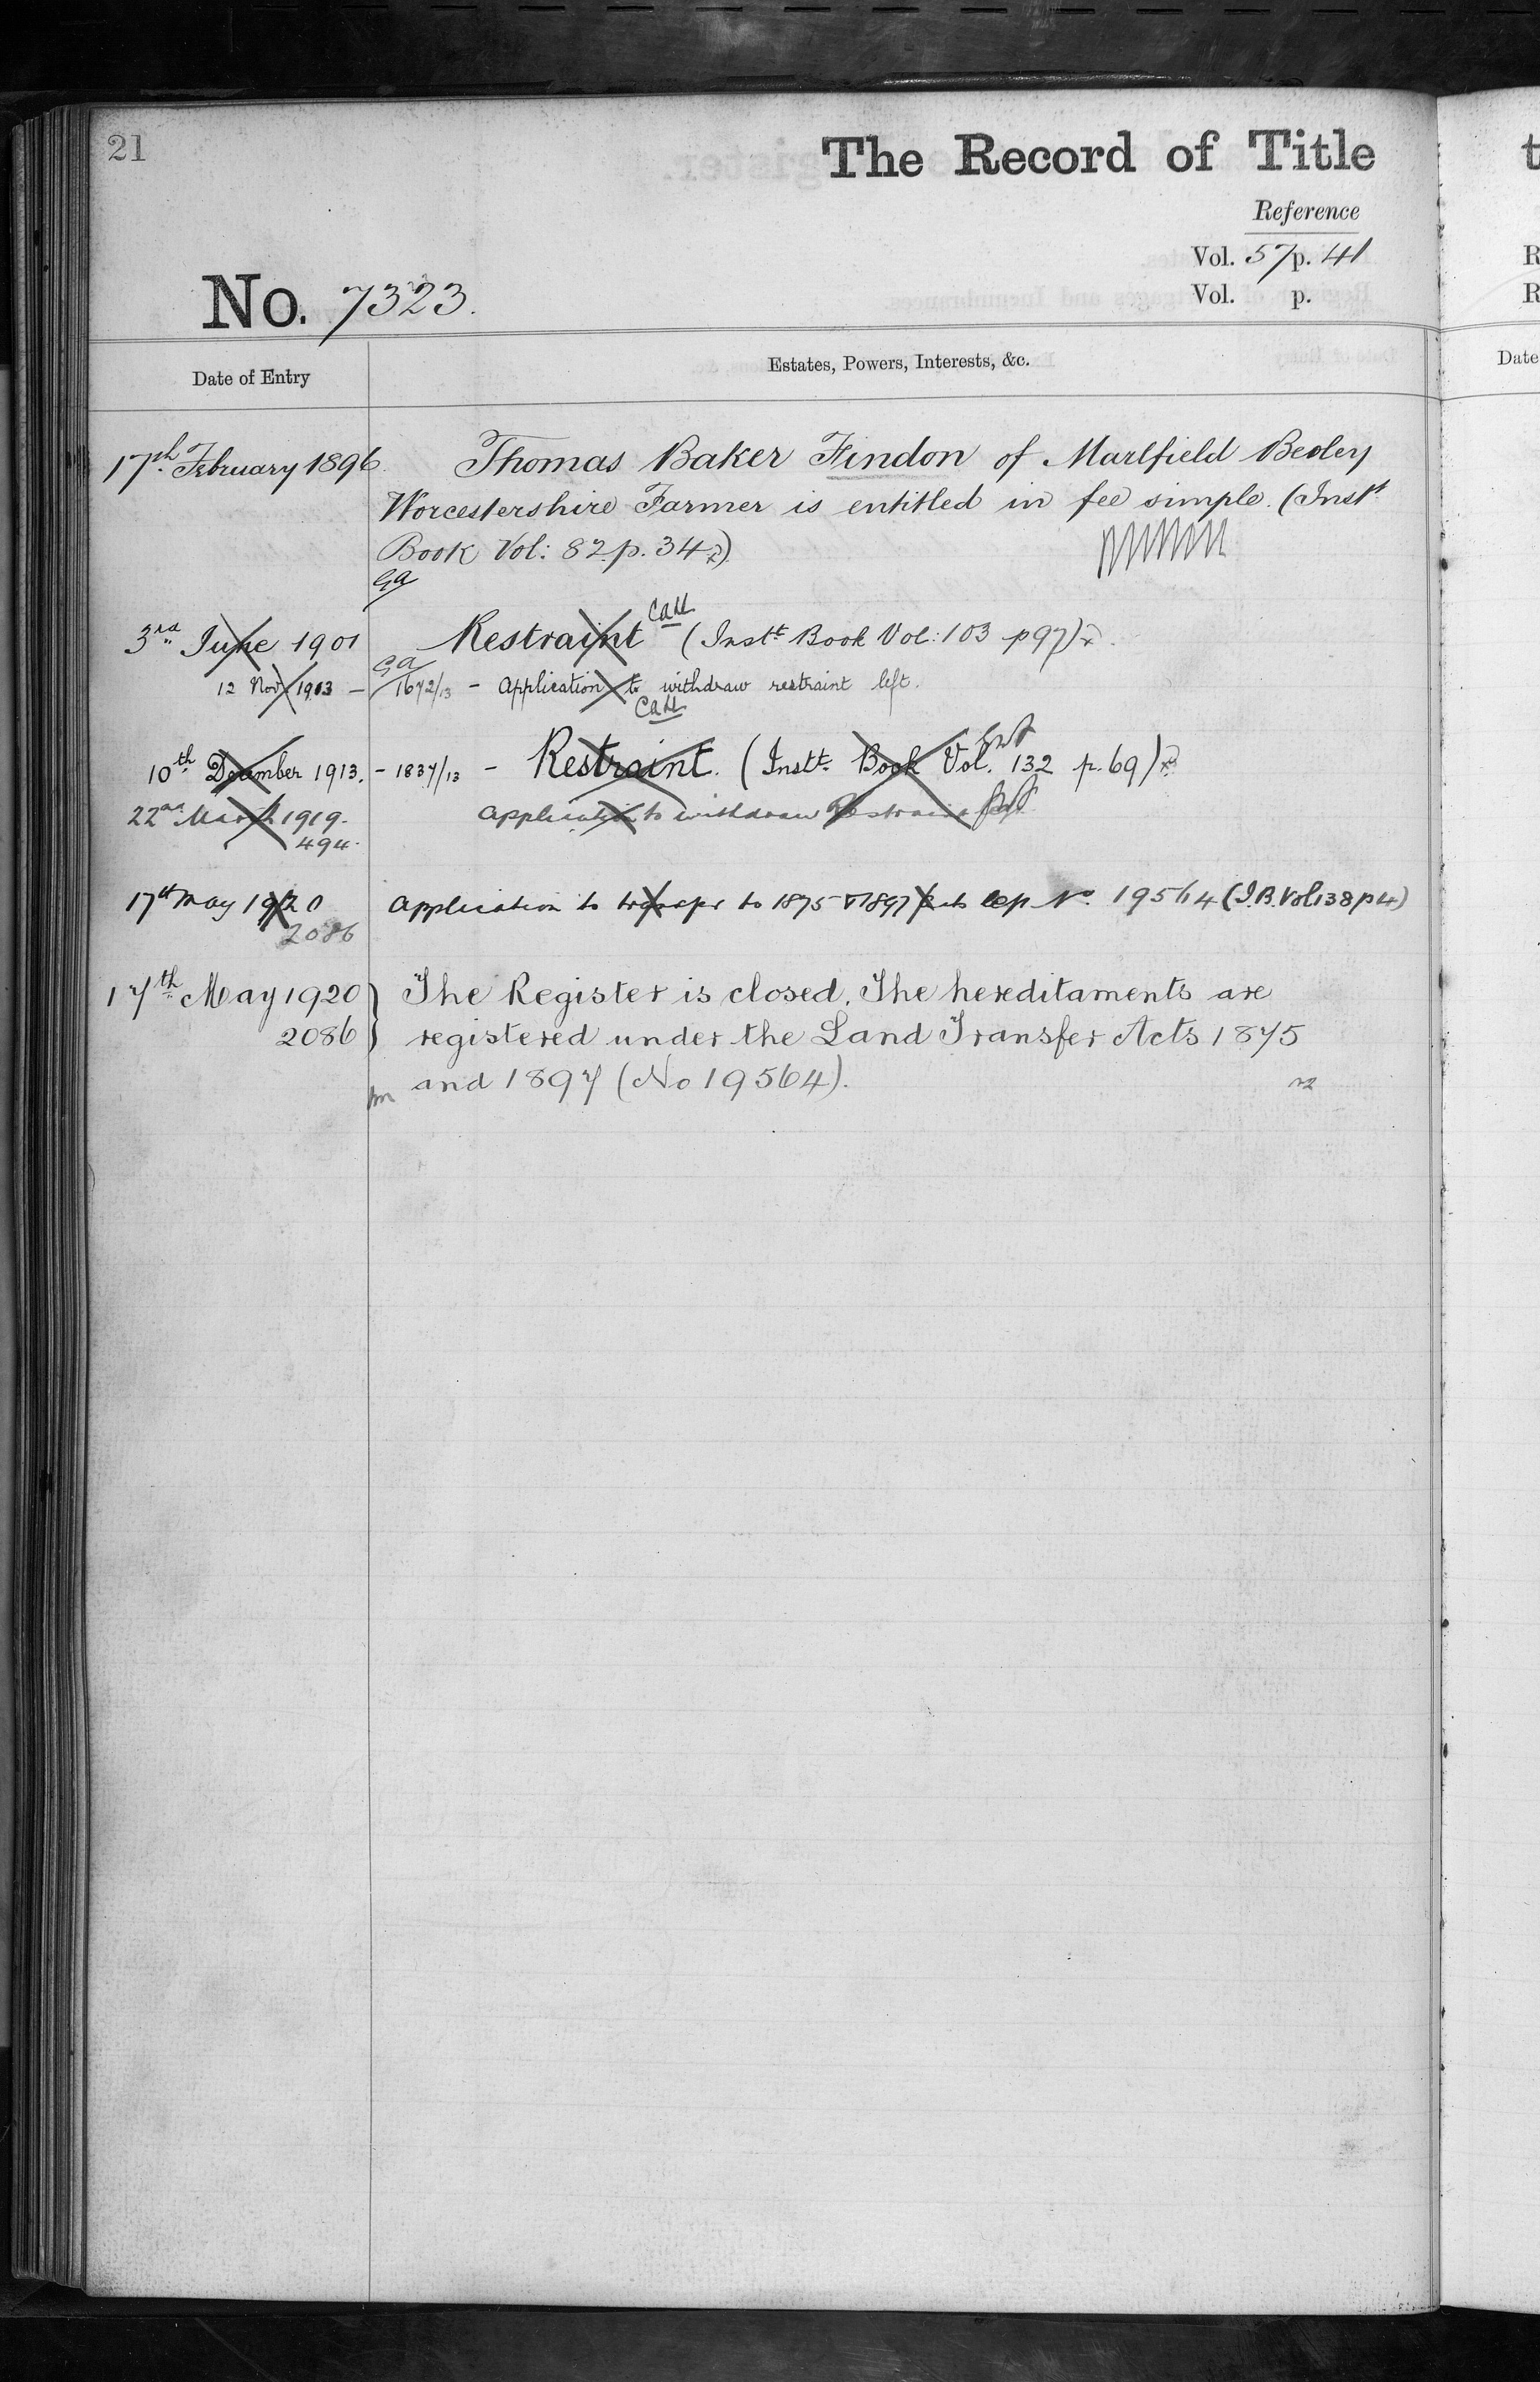 21
The Record of Title
Reference
Vol. 57 p. 41
Vol. p.
No. 7323.
Date of Entry
Estates, Powers, Interests, &c.
17th February 1896. Thomas Baker Findon of Marlfield Beoley
Worcestershire Farmer is entitled in fee simple. (Instt
Book Vol: 82 p. 34)
GA
3rd June 1901 Restraint (Instt Book Vol: 103 p 97)
CAH
GA
12 Nov 1913 - 1672/13 - Application to withdraw restraint left.
CAH
10th December 1913. - 1837/13 - Restraint. (Instt. Book Vol. 132 p. 69)
22nd March 1919. Application to withdraw Restraint
494.
17th May 1920 Application to transfer to 1875 & 1897 Acts No. 19564 (I.B. Vol 138 p 4)
2086
17th May 1920 } The Register is closed. The hereditaments are
2086 } registered under the Land Transfer Acts 1875
and 1897 (No 19564).
t
R
R
Date